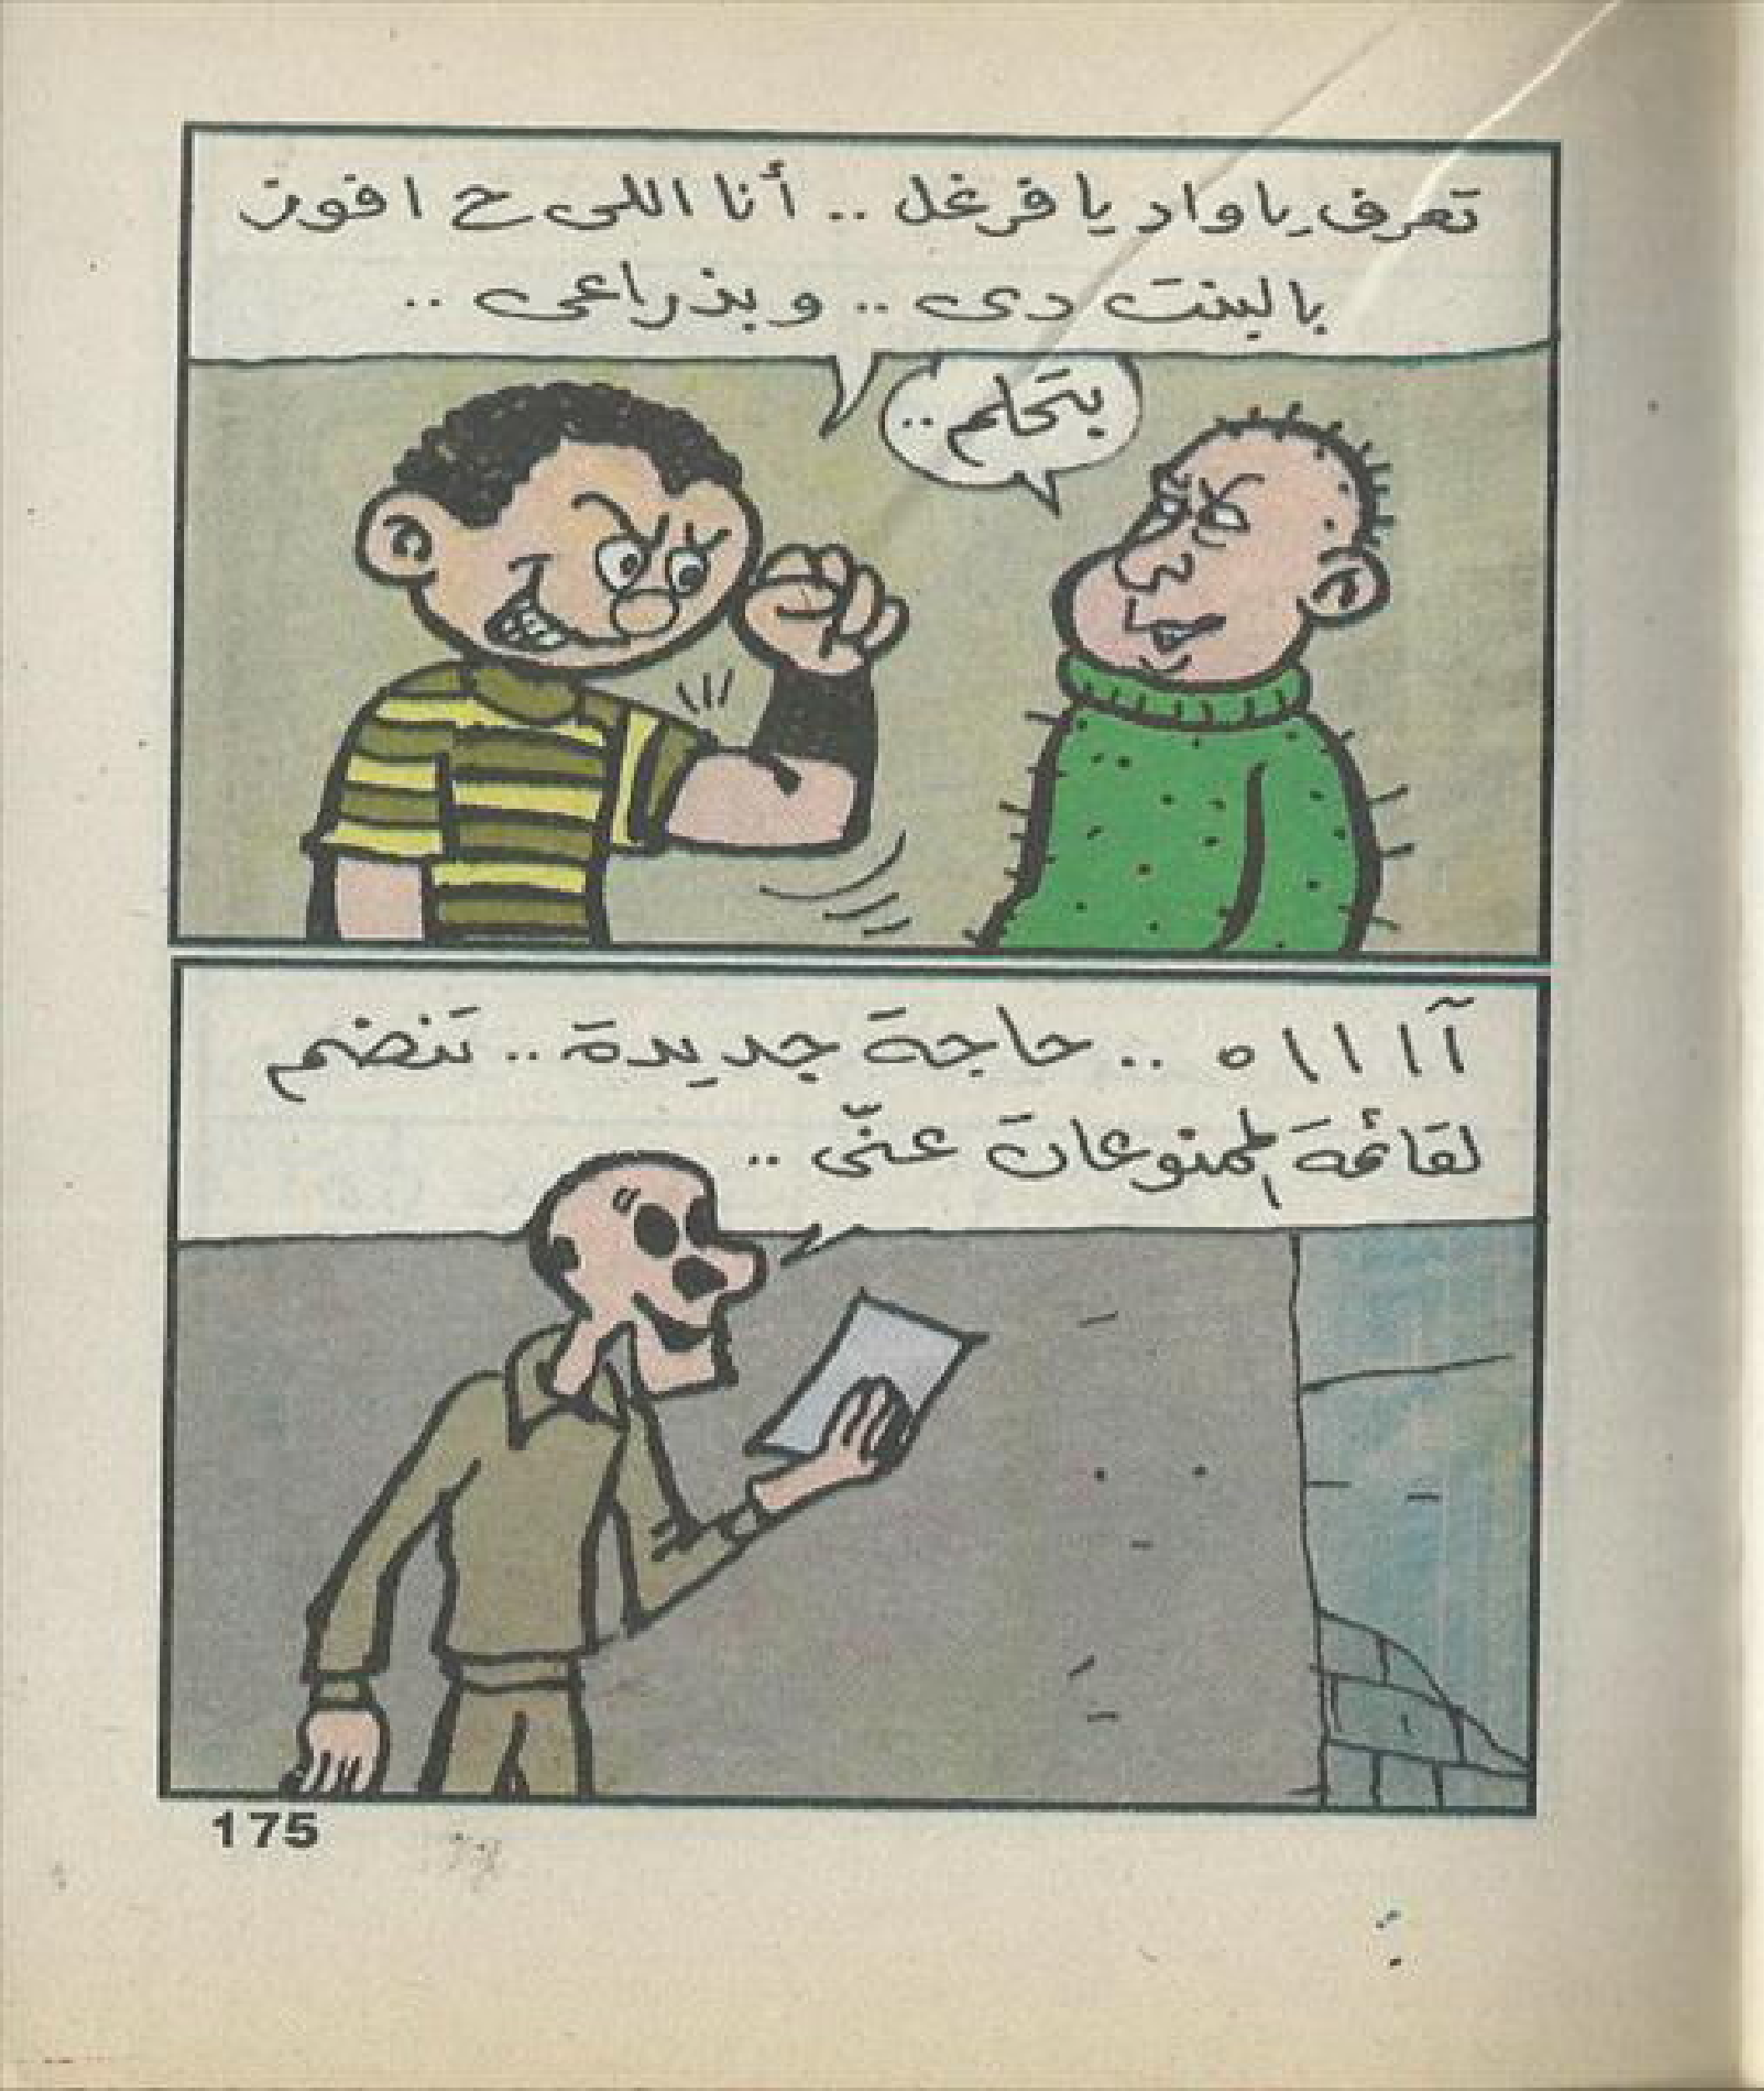 تعرف يا واد يا فرغل .. أنا اللى ح افوز
بالبنت دى .. وبذراعى ..
بتحلم ..
آ ا ا ا ه .. حاجة جديدة .. تنضم
لقائمة الممنوعات عنّى ..
175